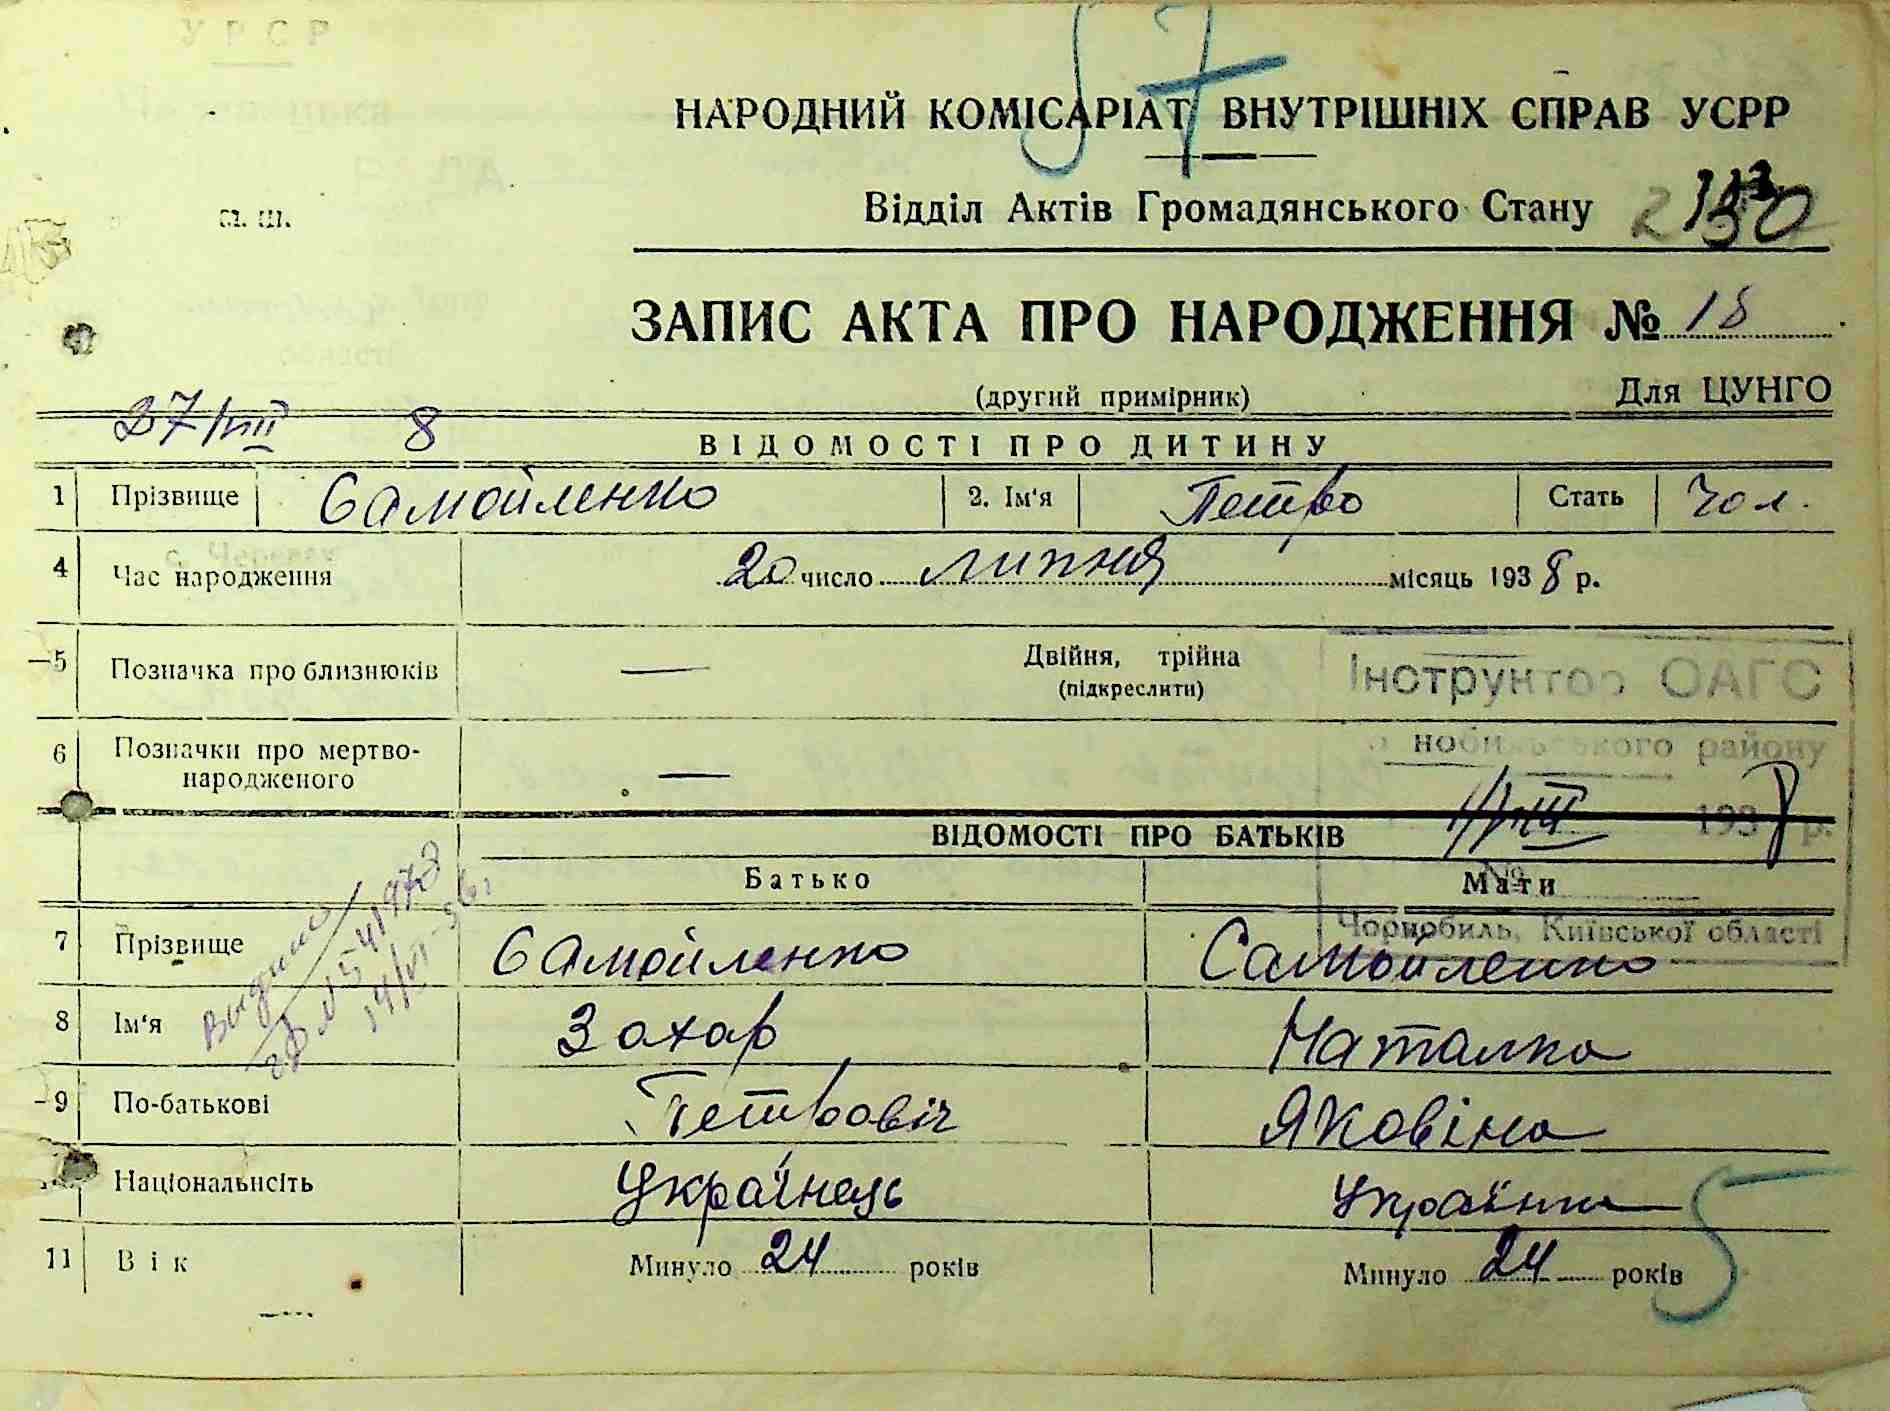 57
НАРОДНИЙ КОМІСАРІАТ ВНУТРІШНІХ СПРАВ УСРР
Відділ Актів Громадянського Стану
ЗАПИС АКТА ПРО НАРОДЖЕННЯ № 18
(другий примірник) Для ЦУНГО
8
ВІДОМОСТІ ПРО ДИТИНУ
1 Прізвище Самойленко 2. Ім'я Петро Стать чол.
4 Час народження 20 число липня місяць 1938 р.
5 Позначка про близнюків — Двійня, трійна
(підкреслити)
Інструктор ОАГС
району
6 Позначки про мертво-
народженого —
1938 р.
ВІДОМОСТІ ПРО БАТЬКІВ
Батько Мати
№
Чорнобиль, Київської області
7 Прізвище Самойленко Самойленко
8 Ім'я Захар Наталка
9 По-батькові Петровіч Яковіна
Національність Українець Українка
11 Вік Минуло 24 років Минуло 24 років
5